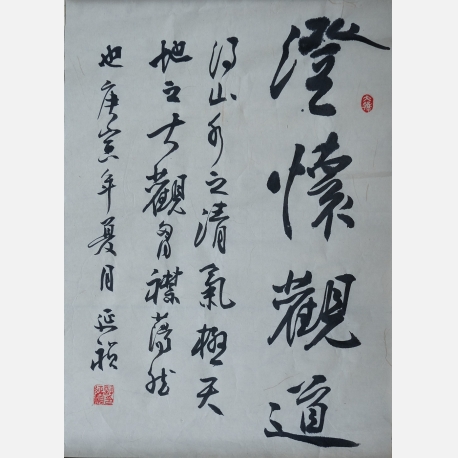 澄懷觀道
得山水之清氣極天
地之大觀胷襟蕩然
也庚寅年夏月延禎